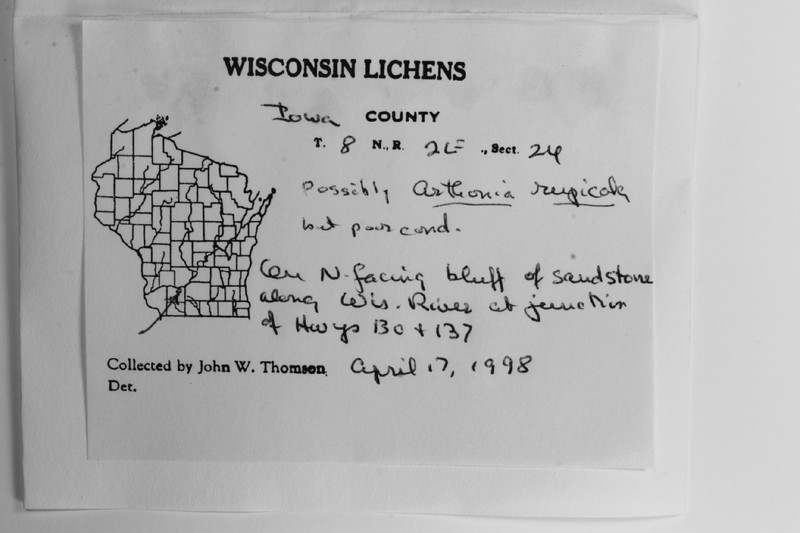 WISCONSIN LICHENS
Iowa COUNTY
T. 8 N., R. 2E ., Sect. 24
Possibly Arthonia rupicola
but poor cond.
On N-facing bluff of sandstone
along Wis. River at junction
of Hwys 130 + 137
Collected by John W. Thomson, April 17, 1998
Det.